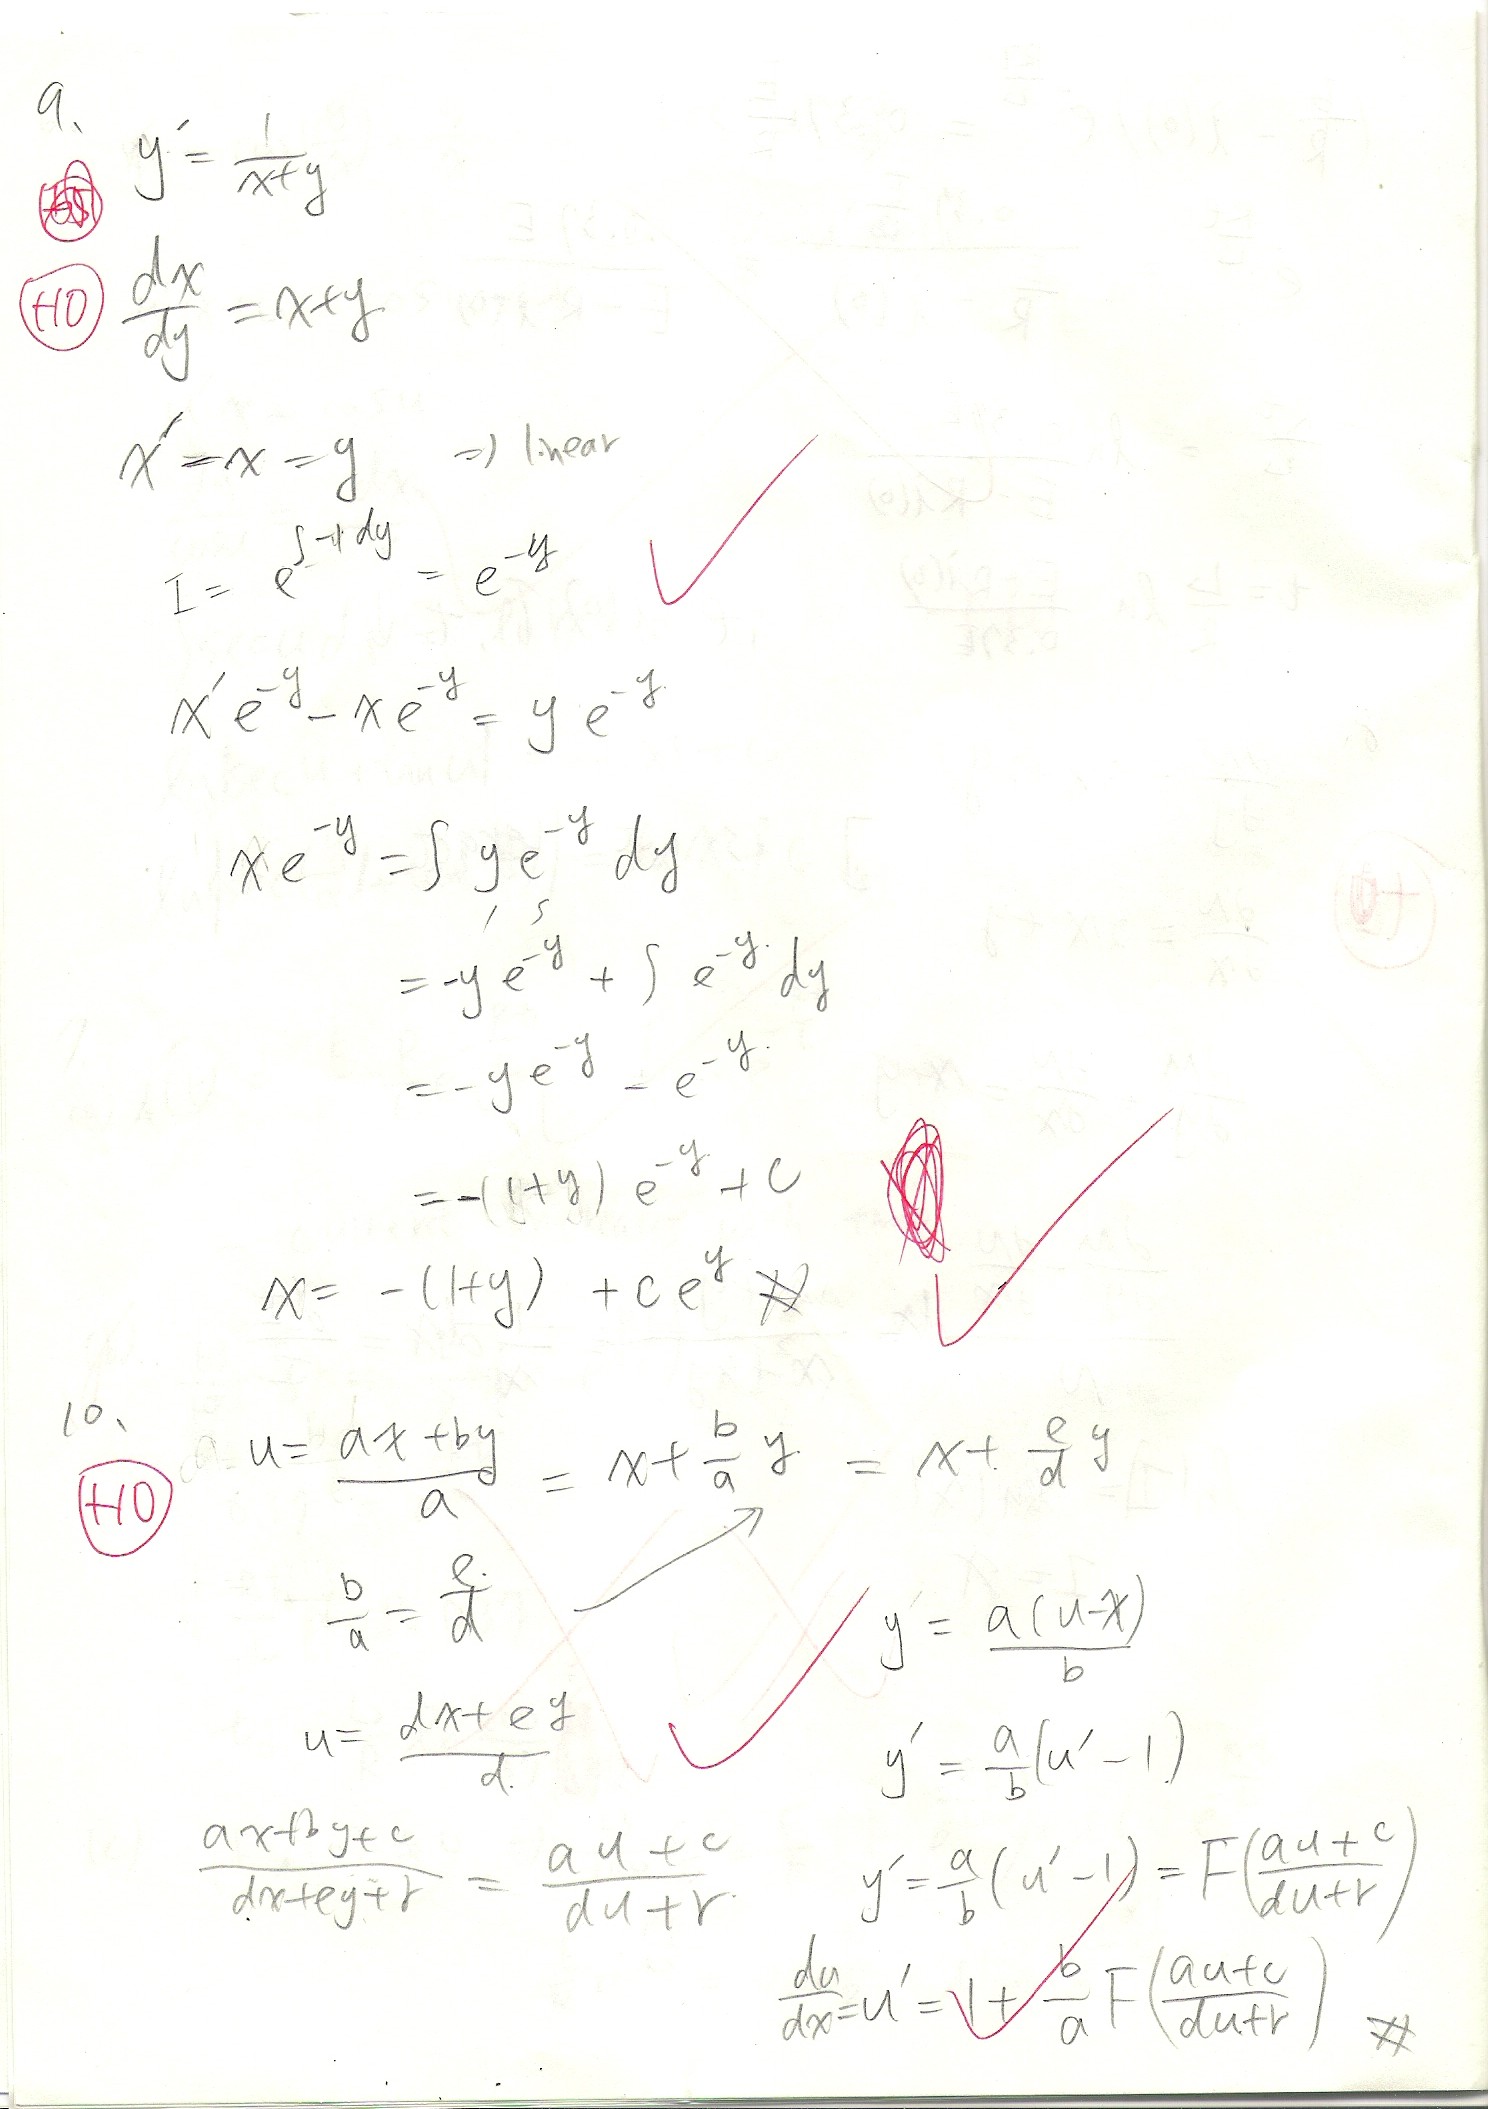 9、
y′ = 1/(x+y)
+10
dx/dy = x+y
x′ − x = y ⇒ linear
I = e^{∫−1dy} = e^{−y}
x′e^{−y} − xe^{−y} = y e^{−y}
xe^{−y} = ∫ y e^{−y} dy
= −y e^{−y} + ∫ e^{−y} dy
= −y e^{−y} − e^{−y}
= −(1+y) e^{−y} + c
x = −(1+y) + c e^{y} #
10、
+10
u = (ax+by)/a = x + (b/a) y = x + (e/d) y
b/a = e/d
u = (dx+ey)/d
(ax+by+c)/(dx+ey+r) = (au+c)/(du+r)
y = a(u−x)/b
y′ = (a/b)(u′−1)
y′ = (a/b)(u′−1) = F((au+c)/(du+r))
du/dx = u′ = 1 + (b/a) F((au+c)/(du+r)) #